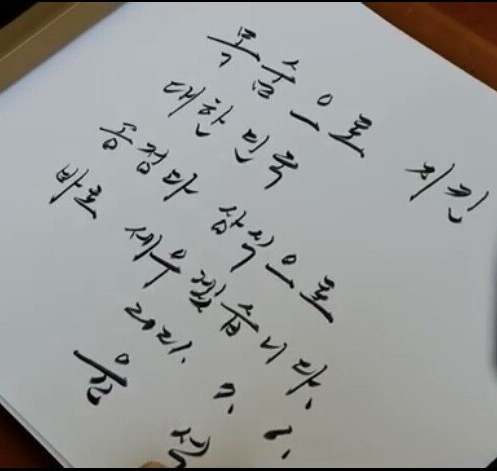 목숨으로 지킨
대한민국
공정과 상식으로
바로 세우겠습니다.
2021. 7. 6.
윤 석